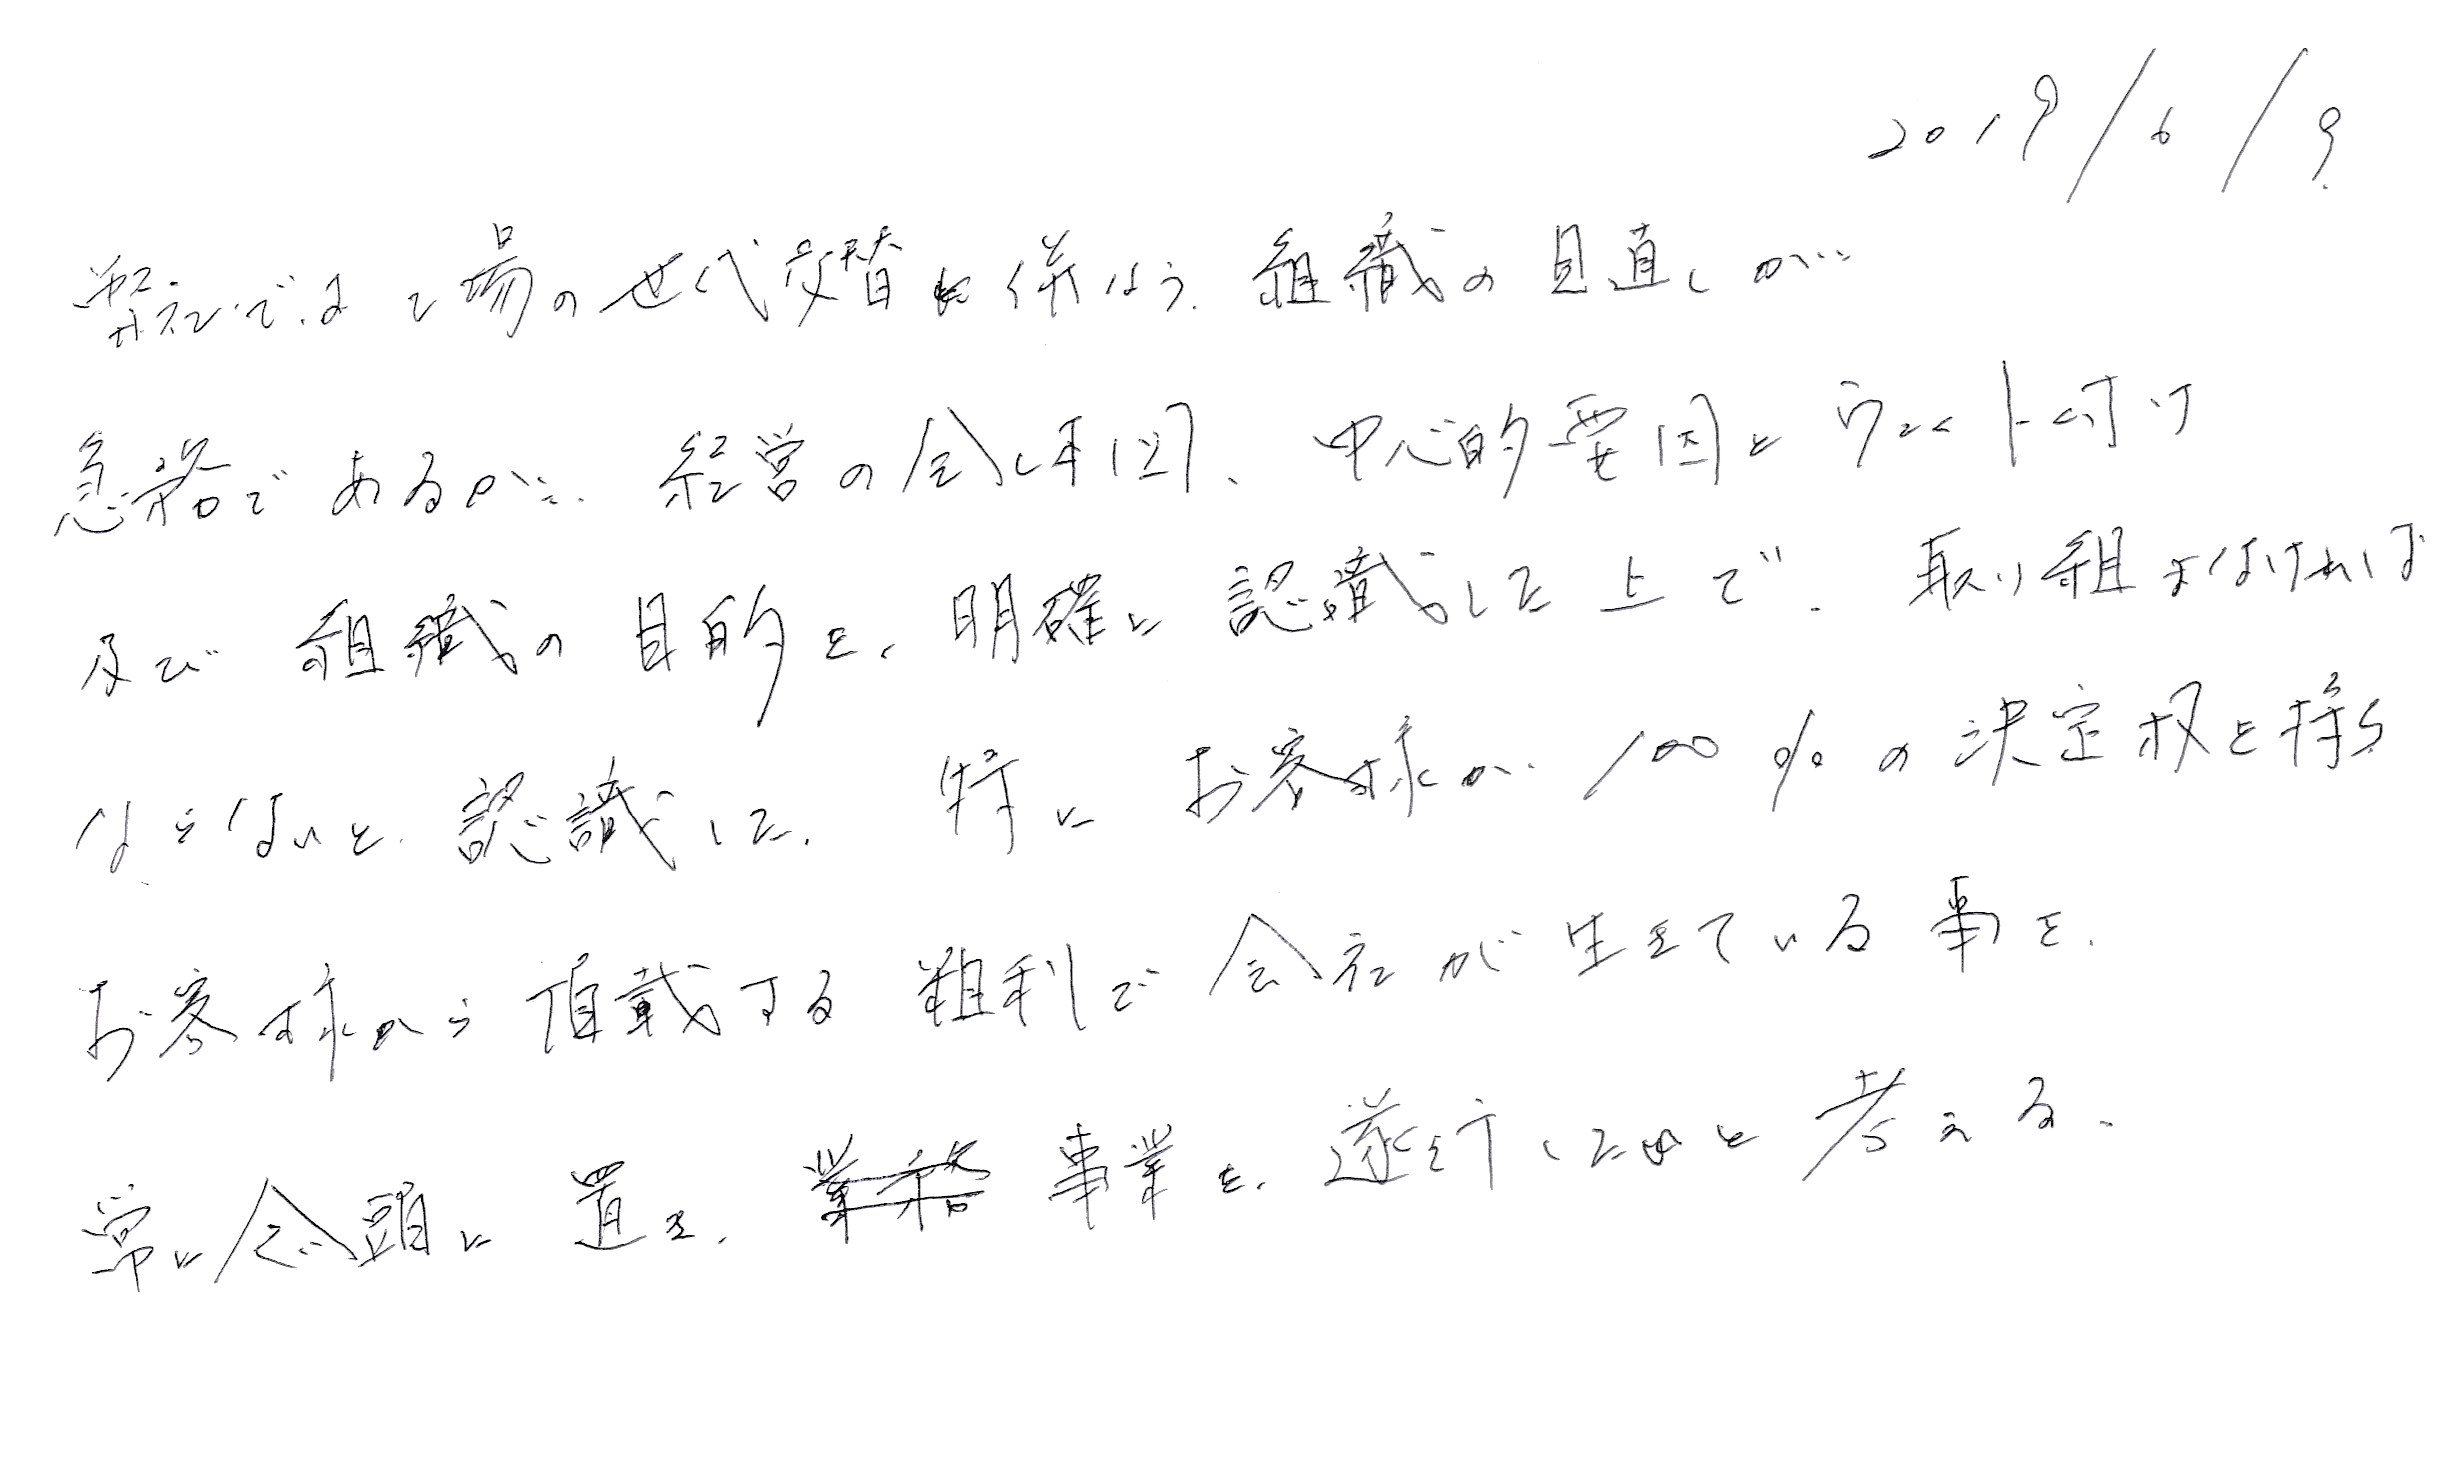 2019/6/9
弊社では工場の世代交替に併なう、組織の見直しが
急務であるが、経営の全体図、中心的要因とウェイト付け
及び組織の目的を、明確に認識した上で、取り組まなければ
ならないと、認識した。特にお客様が100%の決定权を持ち
お客様から頂載する粗利で会社が生きている事を、
常に念頭に置き、業務事業を、遂行したいと考える。